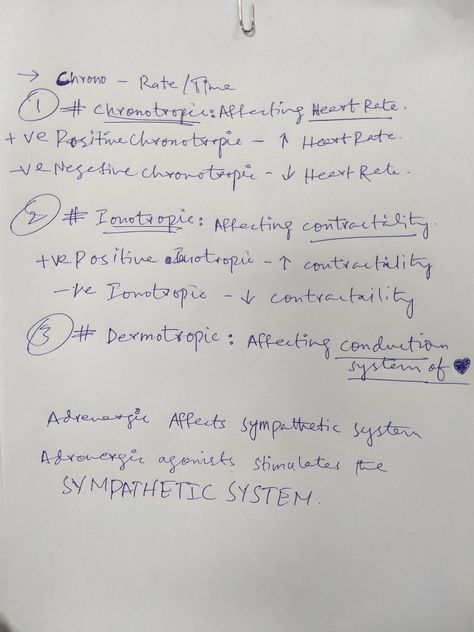 → Chrono - Rate/Time
① # Chronotropic: Affecting Heart Rate.
+ve Positive Chronotropic - ↑ Heart Rate.
-ve Negetive chronotropic - ↓ Heart Rate.
② # Ionotropic: Affecting contractality.
+ve Positive Ionotropic - ↑ contractality
-ve Ionotropic - ↓ contractaility
③ # Dermotropic: Affecting conduction
system of ♥
Adrenergic Affects Sympathetic System
Adronergic agonists stimulates the
SYMPATHETIC SYSTEM.